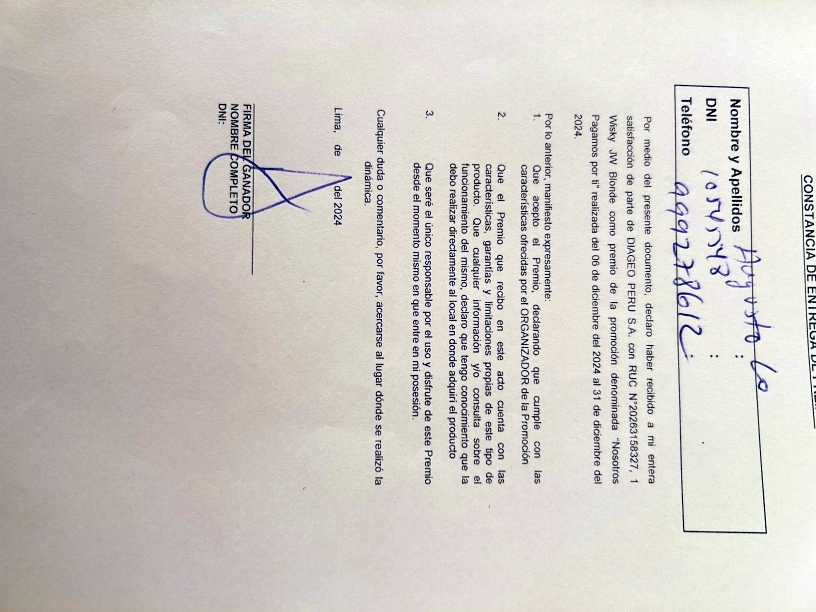 CONSTANCIA DE ENTREGA DE
Nombre y Apellidos : Augusto Lo
DNI :
Teléfono : 999278612
Por medio del presente documento, declaro haber recibido a mi entera
satisfacción de parte de DIAGEO PERU S.A. con RUC N°20263158327, 1
Wisky JW Blonde como premio de la promoción denominada "Nosotros
Pagamos por ti" realizada del 06 de diciembre del 2024 al 31 de diciembre del
2024.
Por lo anterior, manifiesto expresamente:
1. Que acepto el Premio, declarando que cumple con las
características ofrecidas por el ORGANIZADOR de la Promoción
2. Que el Premio que recibo en este acto cuenta con las
características, garantías y limitaciones propias de este tipo de
producto. Que cualquier información y/o consulta sobre el
funcionamiento del mismo, declaro que tengo conocimiento que la
debo realizar directamente al local en donde adquirí el producto
3. Que seré el único responsable por el uso y disfrute de este Premio
desde el momento mismo en que entre en mi posesión.
Cualquier duda o comentario, por favor, acercarse al lugar dónde se realizó la
dinámica.
Lima, de del 2024
FIRMA DEL GANADOR
NOMBRE COMPLETO
DNI: